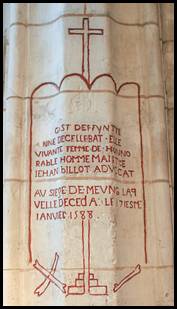 CI GIST DEFFVNTE
ANNE DECELLEBAT · ELLE
VIVANTE FEMME · DE · HONNO
RABLE HOMME MAISTRE
IEHAN BILLOT ADVOCAT
AV SIEGE DE MEVNG LAQ
VELLE DECEDA · LE · IESME
IANVIER · 1588 ·